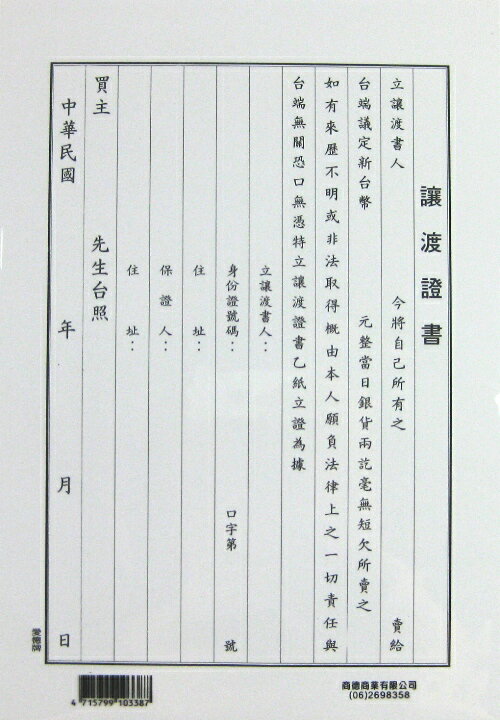 讓渡證書
立讓渡書人 今將自己所有之 賣給
台端議定新台幣 元整當日銀貨兩訖毫無短欠所賣之
如有來歷不明或非法取得概由本人願負法律上之一切責任與
台端無關恐口無憑特立讓渡證書乙紙立證為據
立讓渡書人：
身份證號碼： 口字第 號
住 址：
保 證 人：
住 址：
買主 先生台照
中華民國 年 月 日
愛德牌
4 715799 103387
商德商業有限公司
(06)2698358